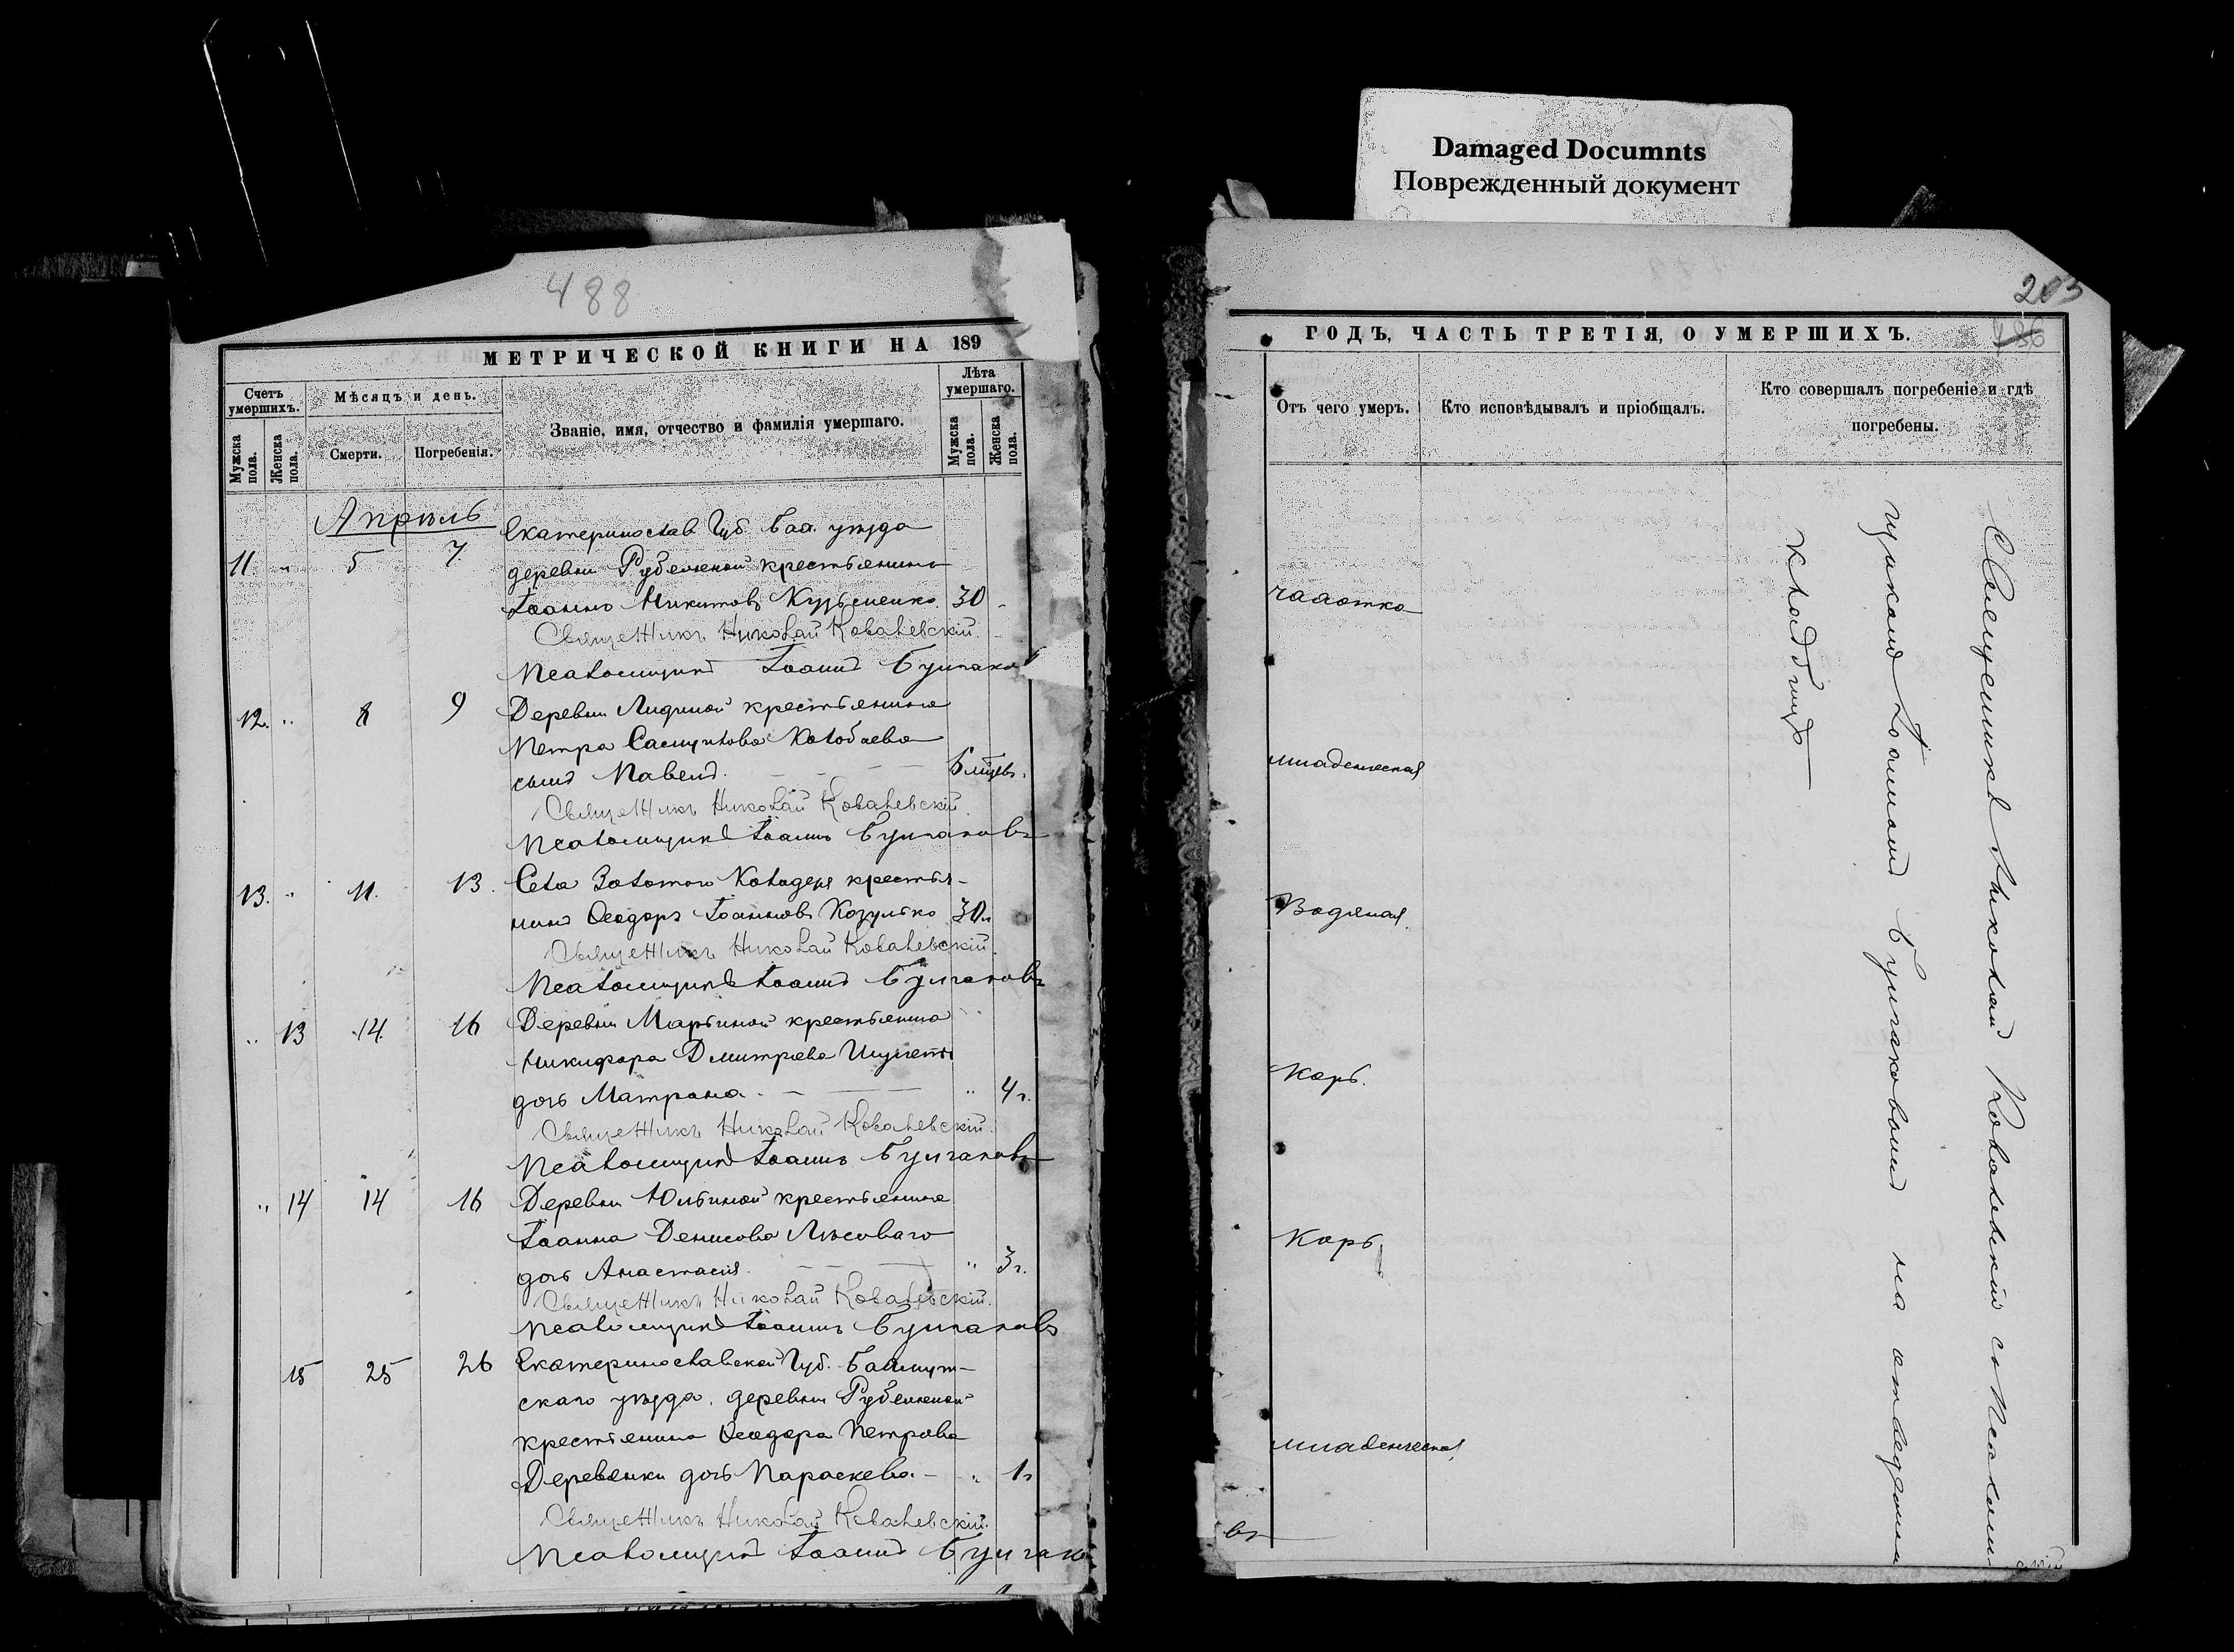 Damaged Documnts
Поврежденный документ
488
МЕТРИЧЕСКОЙ КНИГИ НА 189
Счетъ умершихъ.
Мужска пола.
Женска пола.
Мѣсяцъ и день.
Смерти.
Погребенія.
Званіе, имя, отчество и фамилія умершаго.
Лѣта умершаго.
Мужска пола.
Женска пола.
Апрѣль
Екатеринослав. Губ. Бах. уѣзда
11. " 5 7. деревни Рубежной крестьянинъ
Іоаннъ Никитовъ Кузьменко. 30 -
Священникъ Николай Ковалевскій.
Псаломщикъ Іоаннъ Булгаковъ
12. " 8 9 Деревни Лидиной крестьянина
Петра Самуилова
сынъ Павелъ. 6 мцвъ.
Священникъ Николай Ковалевскій.
Псаломщикъ Іоаннъ Булгаковъ
13. " 11. 13. Села Золотого Колодезя крестья-
нинъ Ѳеодоръ Іоанновъ Козулько 30.
Священникъ Николай Ковалевскій.
Псаломщикъ Іоаннъ Булгаковъ
" 13 14. 16 Деревни Марьиной крестьянина
Никифора Дмитріева
дочь Матрона. " 4 г.
Священникъ Николай Ковалевскій.
Псаломщикъ Іоаннъ Булгаковъ
" 14 14 16 Деревни Юльиной крестьянина
Іоанна Денисова Лѣсоваго
дочь Анастасія. " 3 г.
Священникъ Николай Ковалевскій.
Псаломщикъ Іоаннъ Булгаковъ
15 25 26 Екатеринославской Губ. Бахмут-
скаго уѣзда, деревни Рубежной
крестьянина Ѳеодора Петрова
Деревянки дочь Параскева. " 1 г.
Священникъ Николай Ковалевскій.
Псаломщикъ Іоаннъ Булгаков
203
486
ГОДЪ, ЧАСТЬ ТРЕТІЯ, О УМЕРШИХЪ.
Отъ чего умеръ.
Кто исповѣдывалъ и пріобщалъ.
Кто совершалъ погребеніе и гдѣ погребены.
чахотка
младенческая
Водяная.
Корь.
Корь.
младенческая.
Священникъ Николай Ковалевскій съ Псалом-
щикомъ Іоанномъ Булгаковымъ на отведенномъ
кладбищѣ
въ